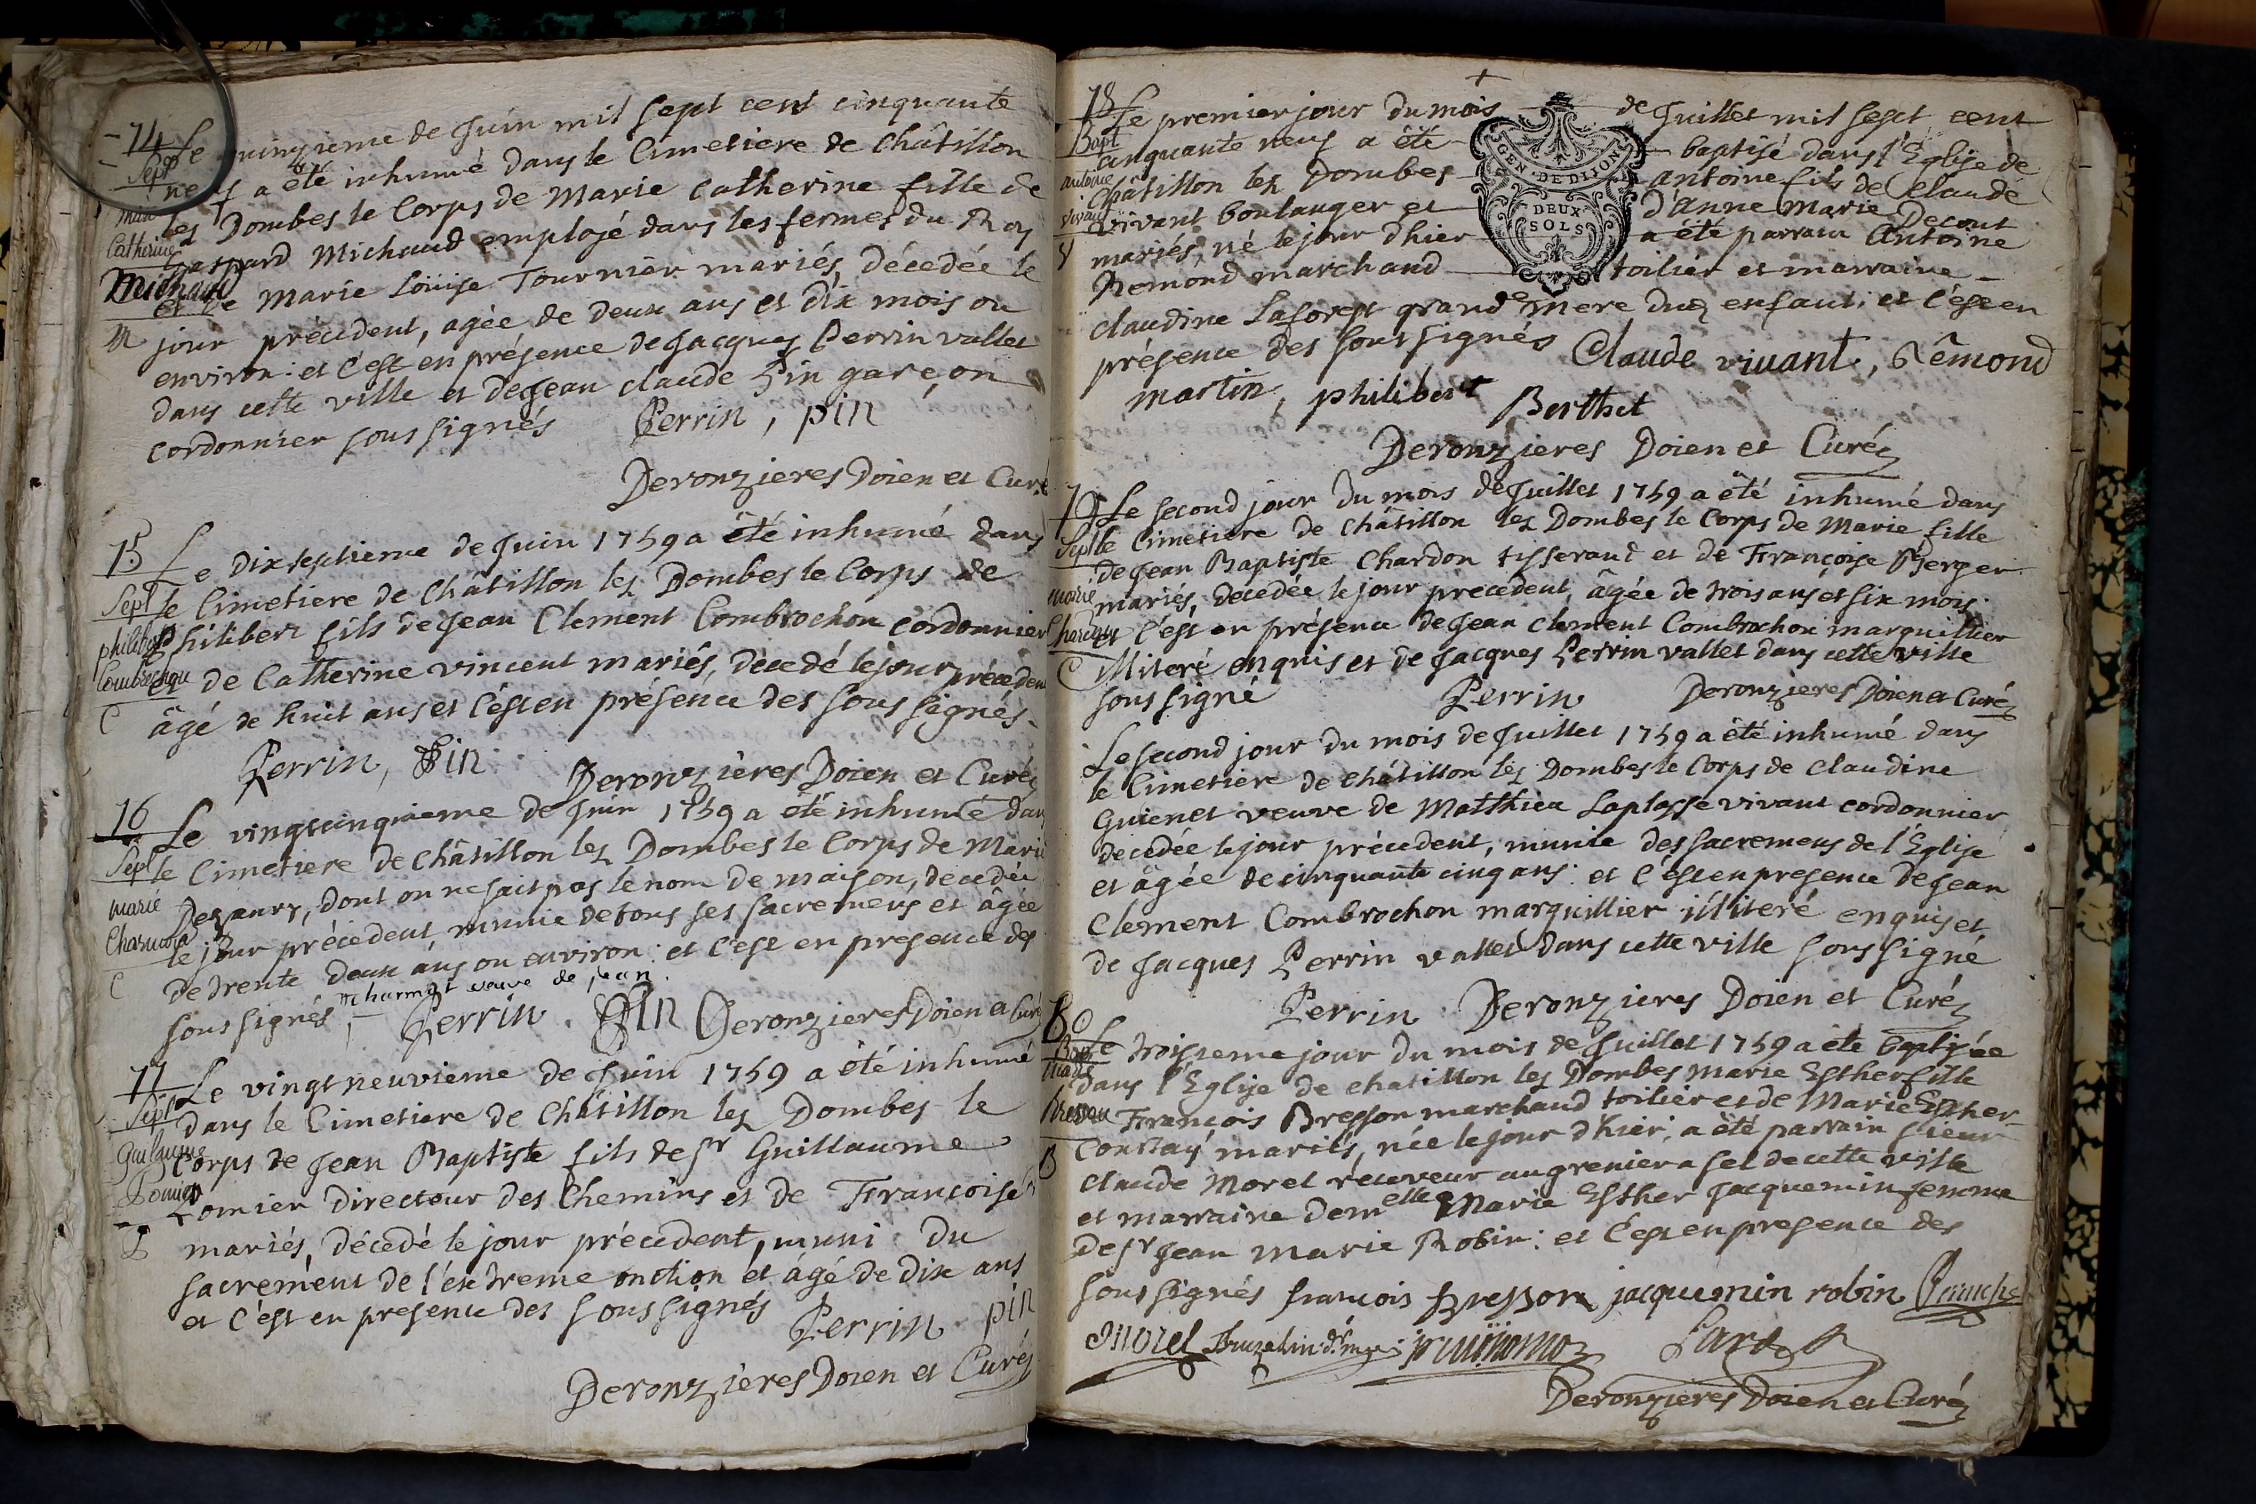 74
Sept
Catherine
Michaud
M
Le quinzieme de Juin mil sept cent cinquante
neuf a été inhumé dans le Cimetiere de Châtillon
les Dombes le Corps de Marie Catherine fille de
Gaspard Michaud employé dans les fermes du Roy
et de Marie Loüise Tournier mariés, décedée le
jour précedent, agée de deux ans et dix mois ou
environ: et c'est en présence de Jacques Perrin vallet
dans cette ville et de Jean claude Pin garçon
cordonnier sous signés Perrin, pin
Deronzieres Doien et Curé
75
Sept
philibert
Combrochon
C
Le dix septieme de Juin 1759 a été inhumé dans
le Cimetiere de Châtillon les Dombes le Corps de
Philibert fils de Jean Clement Combrochon cordonnier
et de Catherine vincent mariés, décedé le jour précedent
âgé de huit ans et c'est en présence des sous signés
Perrin, Pin
Deronzieres Doien et Curé
76
Sept
marie
C
Le vingt cinquieme de Juin 1759 a été inhumé dans
le Cimetiere de Châtillon les Dombes le Corps de Marie
dont on ne sait pas le nom de maison, decedée
le jour précedent munie de tous ses sacremens et âgée
de trente deux ans ou environ: et c'est en presence des
charmat veuve de jean
sous signés, Perrin. Pin Deronzieres Doien et Curé
77
Sept
Guilaume
P
Le vingt neuvieme de Juin 1759 a été inhumé
dans le Cimetiere de Châtillon les Dombes le
Corps de Jean Baptiste fils de sr Guillaume
Pomier Directeur des Chemins et de Françoise
mariés, décedé le jour précedent, muni du
sacrement de l'extreme onction et âgé de dix ans
et c'est en presence des sous signés Perrin pin
Deronzieres Doien et Curé
78
Bapt
antoine
vivant
V
Le premier jour du mois de Juillet mil sept cent
cinquante neuf a été baptisé dans l'Eglise de
Châtillon les Dombes antoine fils de Claude
vivant boulanger et d'anne Marie Decout
mariés, né le jour d'hier a été parrain Antoine
Remond marchand toilier et marraine
claudine Laforest grande mere dud enfant: et c'est en
présence des sous signés Claude vivant, Rêmond
martin, philibert Berthet
GEN · DE DIJON
DEUX
SOLS
Deronzieres Doien et Curé
79
Sept
marie
Chardon
C
Le second jour du mois de Juillet 1759 a été inhumé dans
le Cimetiere de Châtillon les Dombes le Corps de Marie fille
de Jean Baptiste Chardon tisserand et de Françoise Berger
mariés, decedée le jour precedent, âgée de trois ans et six mois
et c'est en présence de Jean clement Combrochon marguillier
illiteré enquis et de Jacques Perrin vallet dans cette ville
sous signé Perrin Deronzieres Doien et Curé
Le second jour du mois de Juillet 1759 a été inhumé dans
le Cimetiere de Châtillon les Dombes le Corps de Claudine
Guienet veuve de Matthieu Laplasse vivant cordonnier
decedée le jour précedent, munie des sacremens de l'Eglise
et âgée de cinquante cinq ans: et c'est en presence de Jean
Clement Combrochon marguillier illiteré enquis et
de Jacques Perrin vallet dans cette ville sous signé
Perrin Deronzieres Doien et Curé
80
Bapt
Bresson
B
Le troisieme jour du mois de Juillet 1759 a été baptisée
dans l'Eglise de chatillon les Dombes Marie Esther fille
François Bresson marchand toilier et de Marie Esther
mariés, née le jour d'hier, a été parrain sieur
claude Morel receveur au grenier a sel de cette ville
et marraine demelle Marie Esther Jacquemin femme
de sr Jean Marie Robin: et c'est en presence des
sous signés françois Bresson jacquemin robin
Morel
Deronzieres Doien et Curé